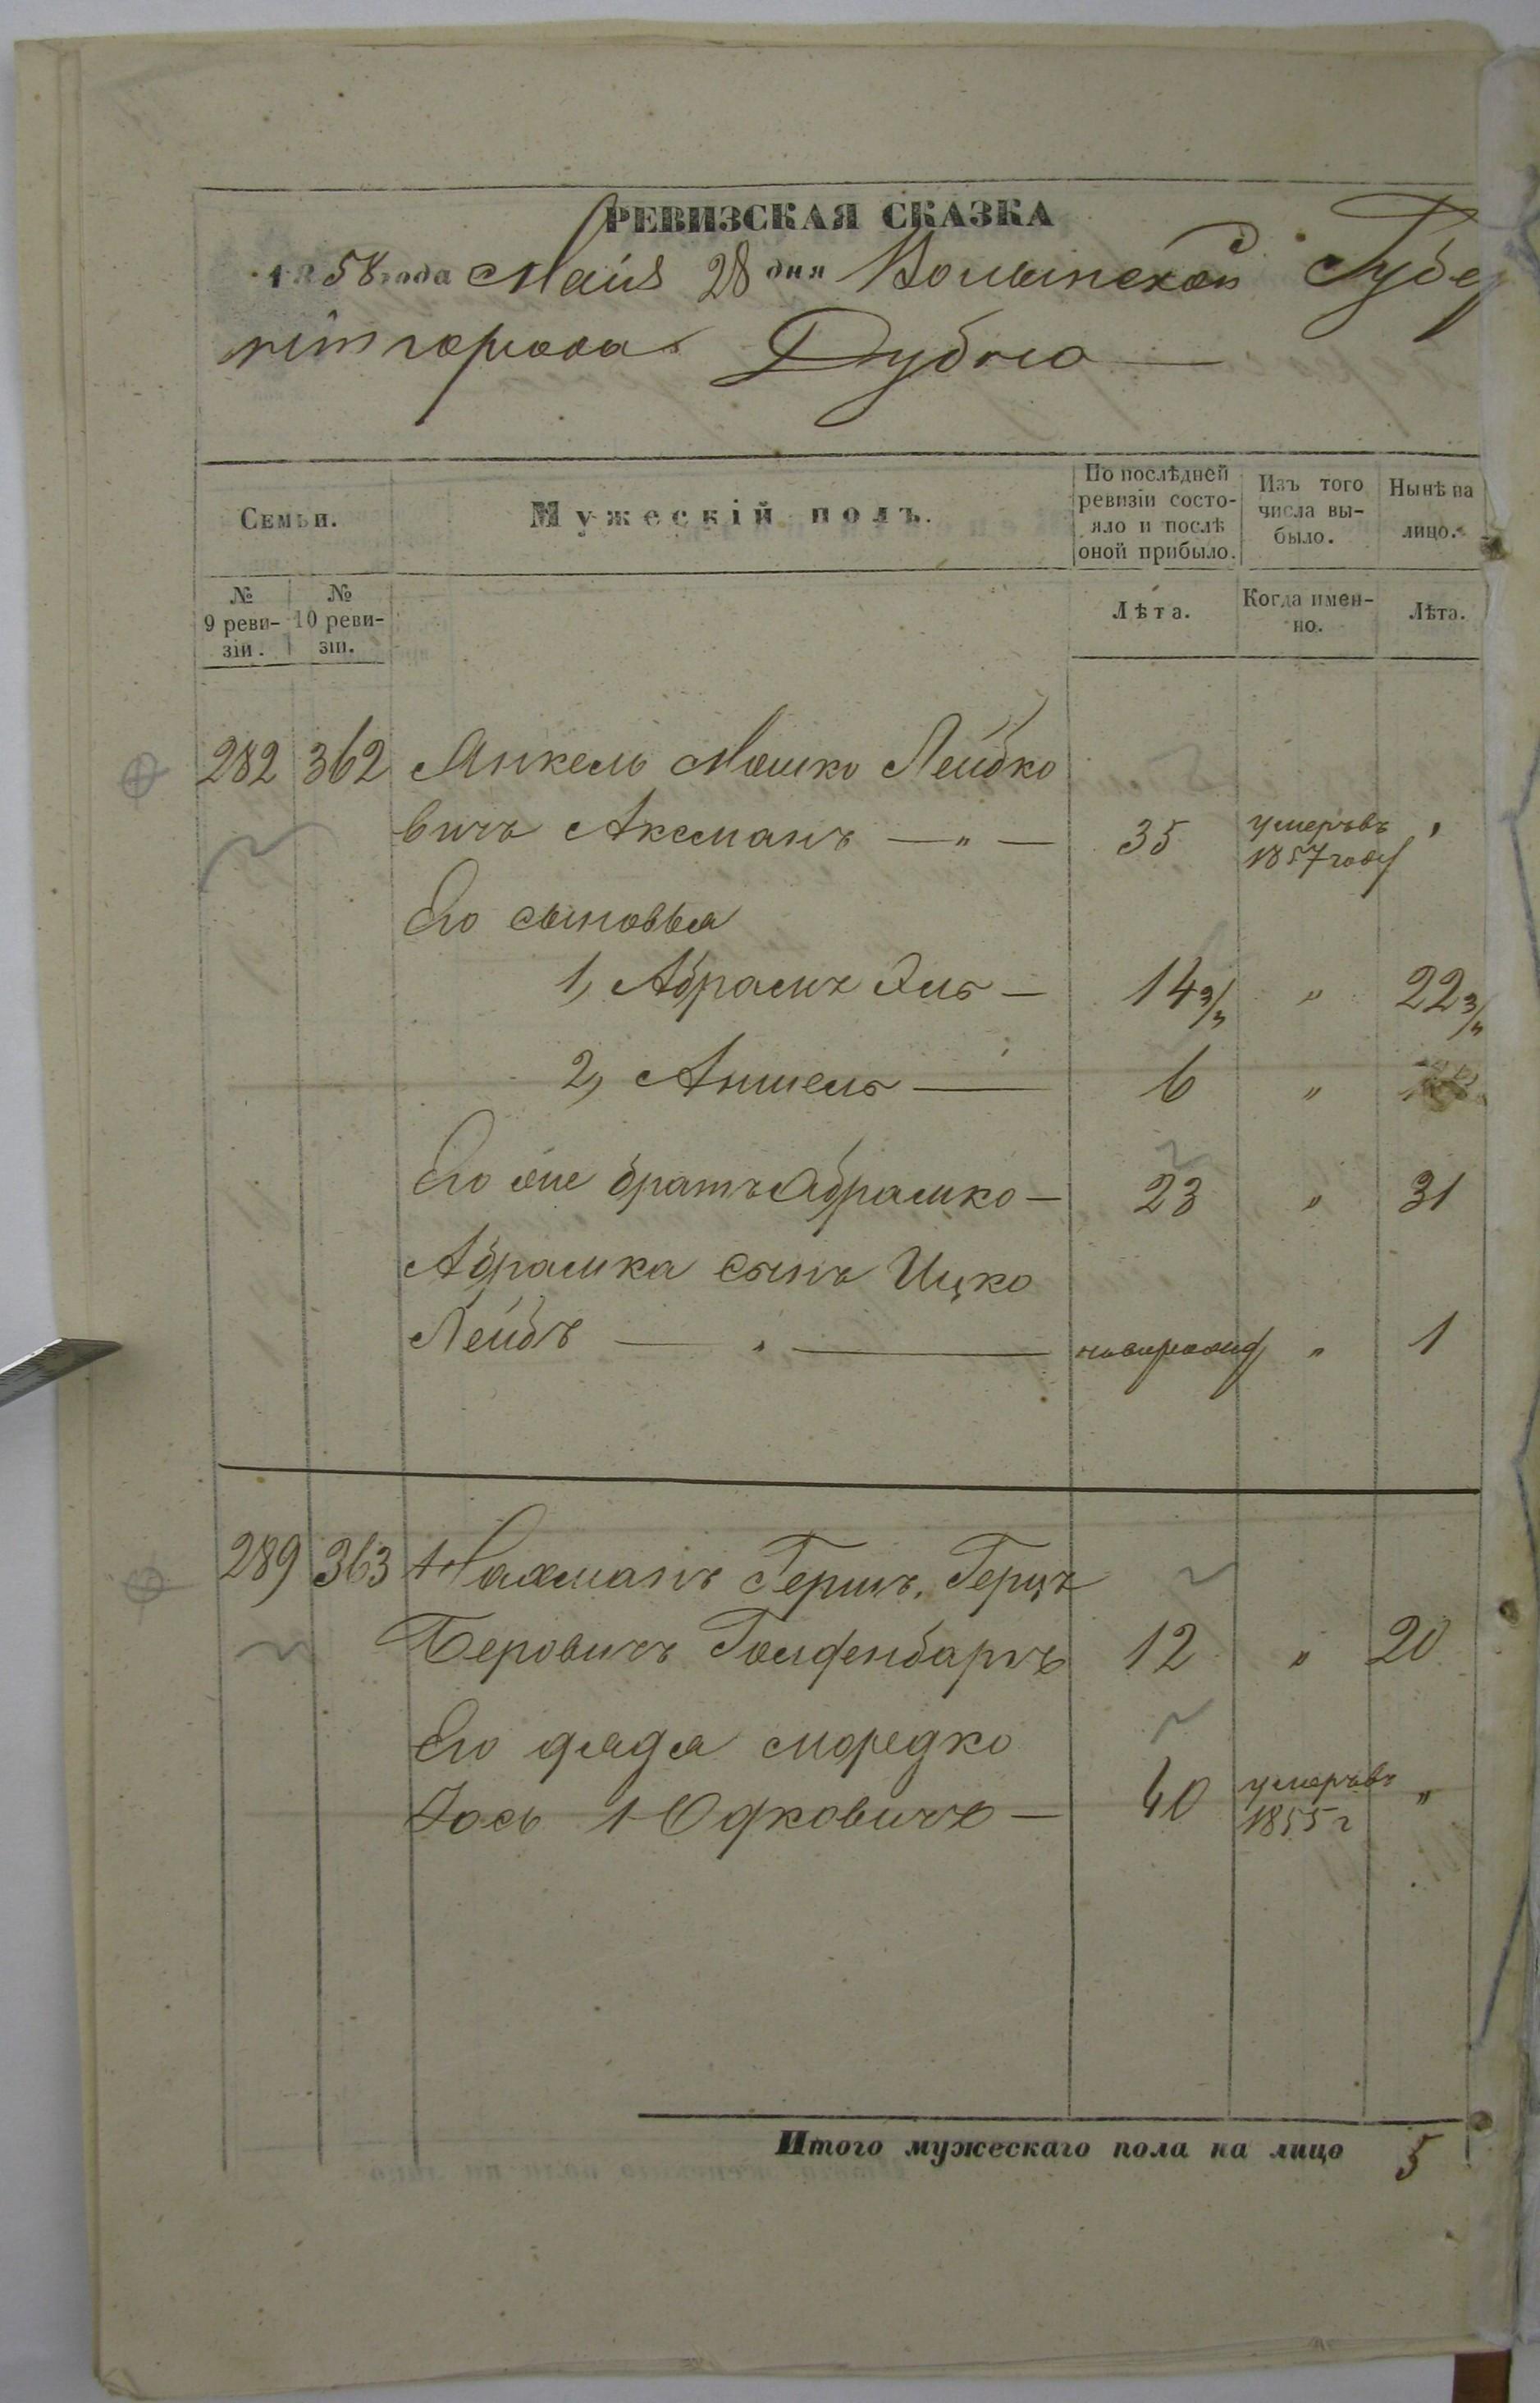 РЕВИЗСКАЯ СКАЗКА
1858 года Маія 28 дня Волынской Губе
ніи города Дубно
Семьи.
Мужескій полъ.
По послѣдней ревизіи состояло и послѣ оной прибыло.
Изъ того числа выбыло.
Нынѣ на лицо.
№ 9 ревизіи.
№ 10 ревизіи.
Лѣта.
Когда именно.
Лѣта.
282 362 Янкель Мошко Лейбко
вичъ Аксманъ — „ — 35 умеръ въ 1857 году
Его сыновья
1, Абрамъ Эль — 14 3/4 „ 22 3/4
2, Аншель — 6 „
Его же братъ Абрамко — 23 „ 31
Абрамка сынъ Ицко
Лейбъ — „ — новорожд „ 1
289 363 Нахманъ Гершъ. Герцъ
Беровичъ Голденбаргъ 12 „ 20
Его дядя Мордко
Іось Юдковичъ — 40 умеръ въ 1855 г „
Итого мужескаго пола на лицо 5